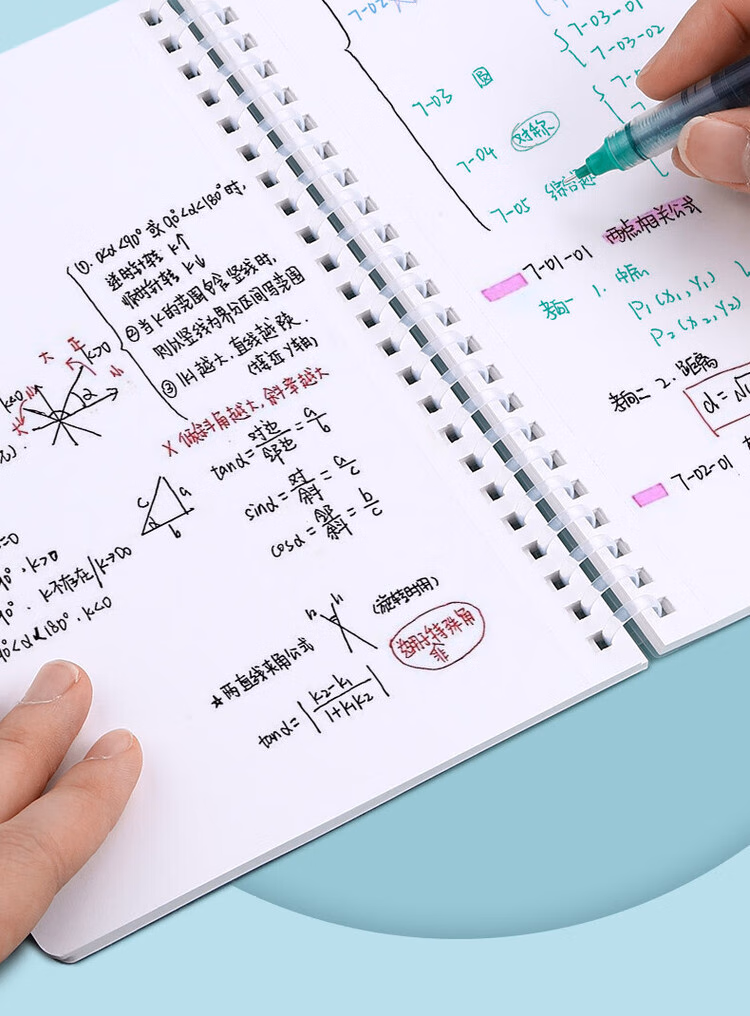 ①. 0<α<90° 或 90°<α<180°时,
逆时针转 k↑
顺时针转 k↓
②当k的范围包含竖线时,
则以竖线为界分区间写范围
③ |k|越大,直线越陡.
(接近y轴)
大 正
k>0
k<0
α
X 倾斜角越大,斜率越大
tanα=对边/邻边=a/b
sinα=对/斜=a/c
cosα=邻/斜=b/c
c a
α b
=0
90°. k>0
90°. k不存在/k→∞
90°<α<180°. k<0
★两直线夹角公式
(旋转时用)
tanα=|k2-k1/1+k1k2|
适用于特殊角
7-02
7-03-01
7-03-02
7-03 圆
7-04 对称
7-05 综合题
7-01-01 两点相关公式
考向一 1. 中点
P1(x1,y1)
P2(x2,y2)
考向二 2. 距离
d=√
7-02-01